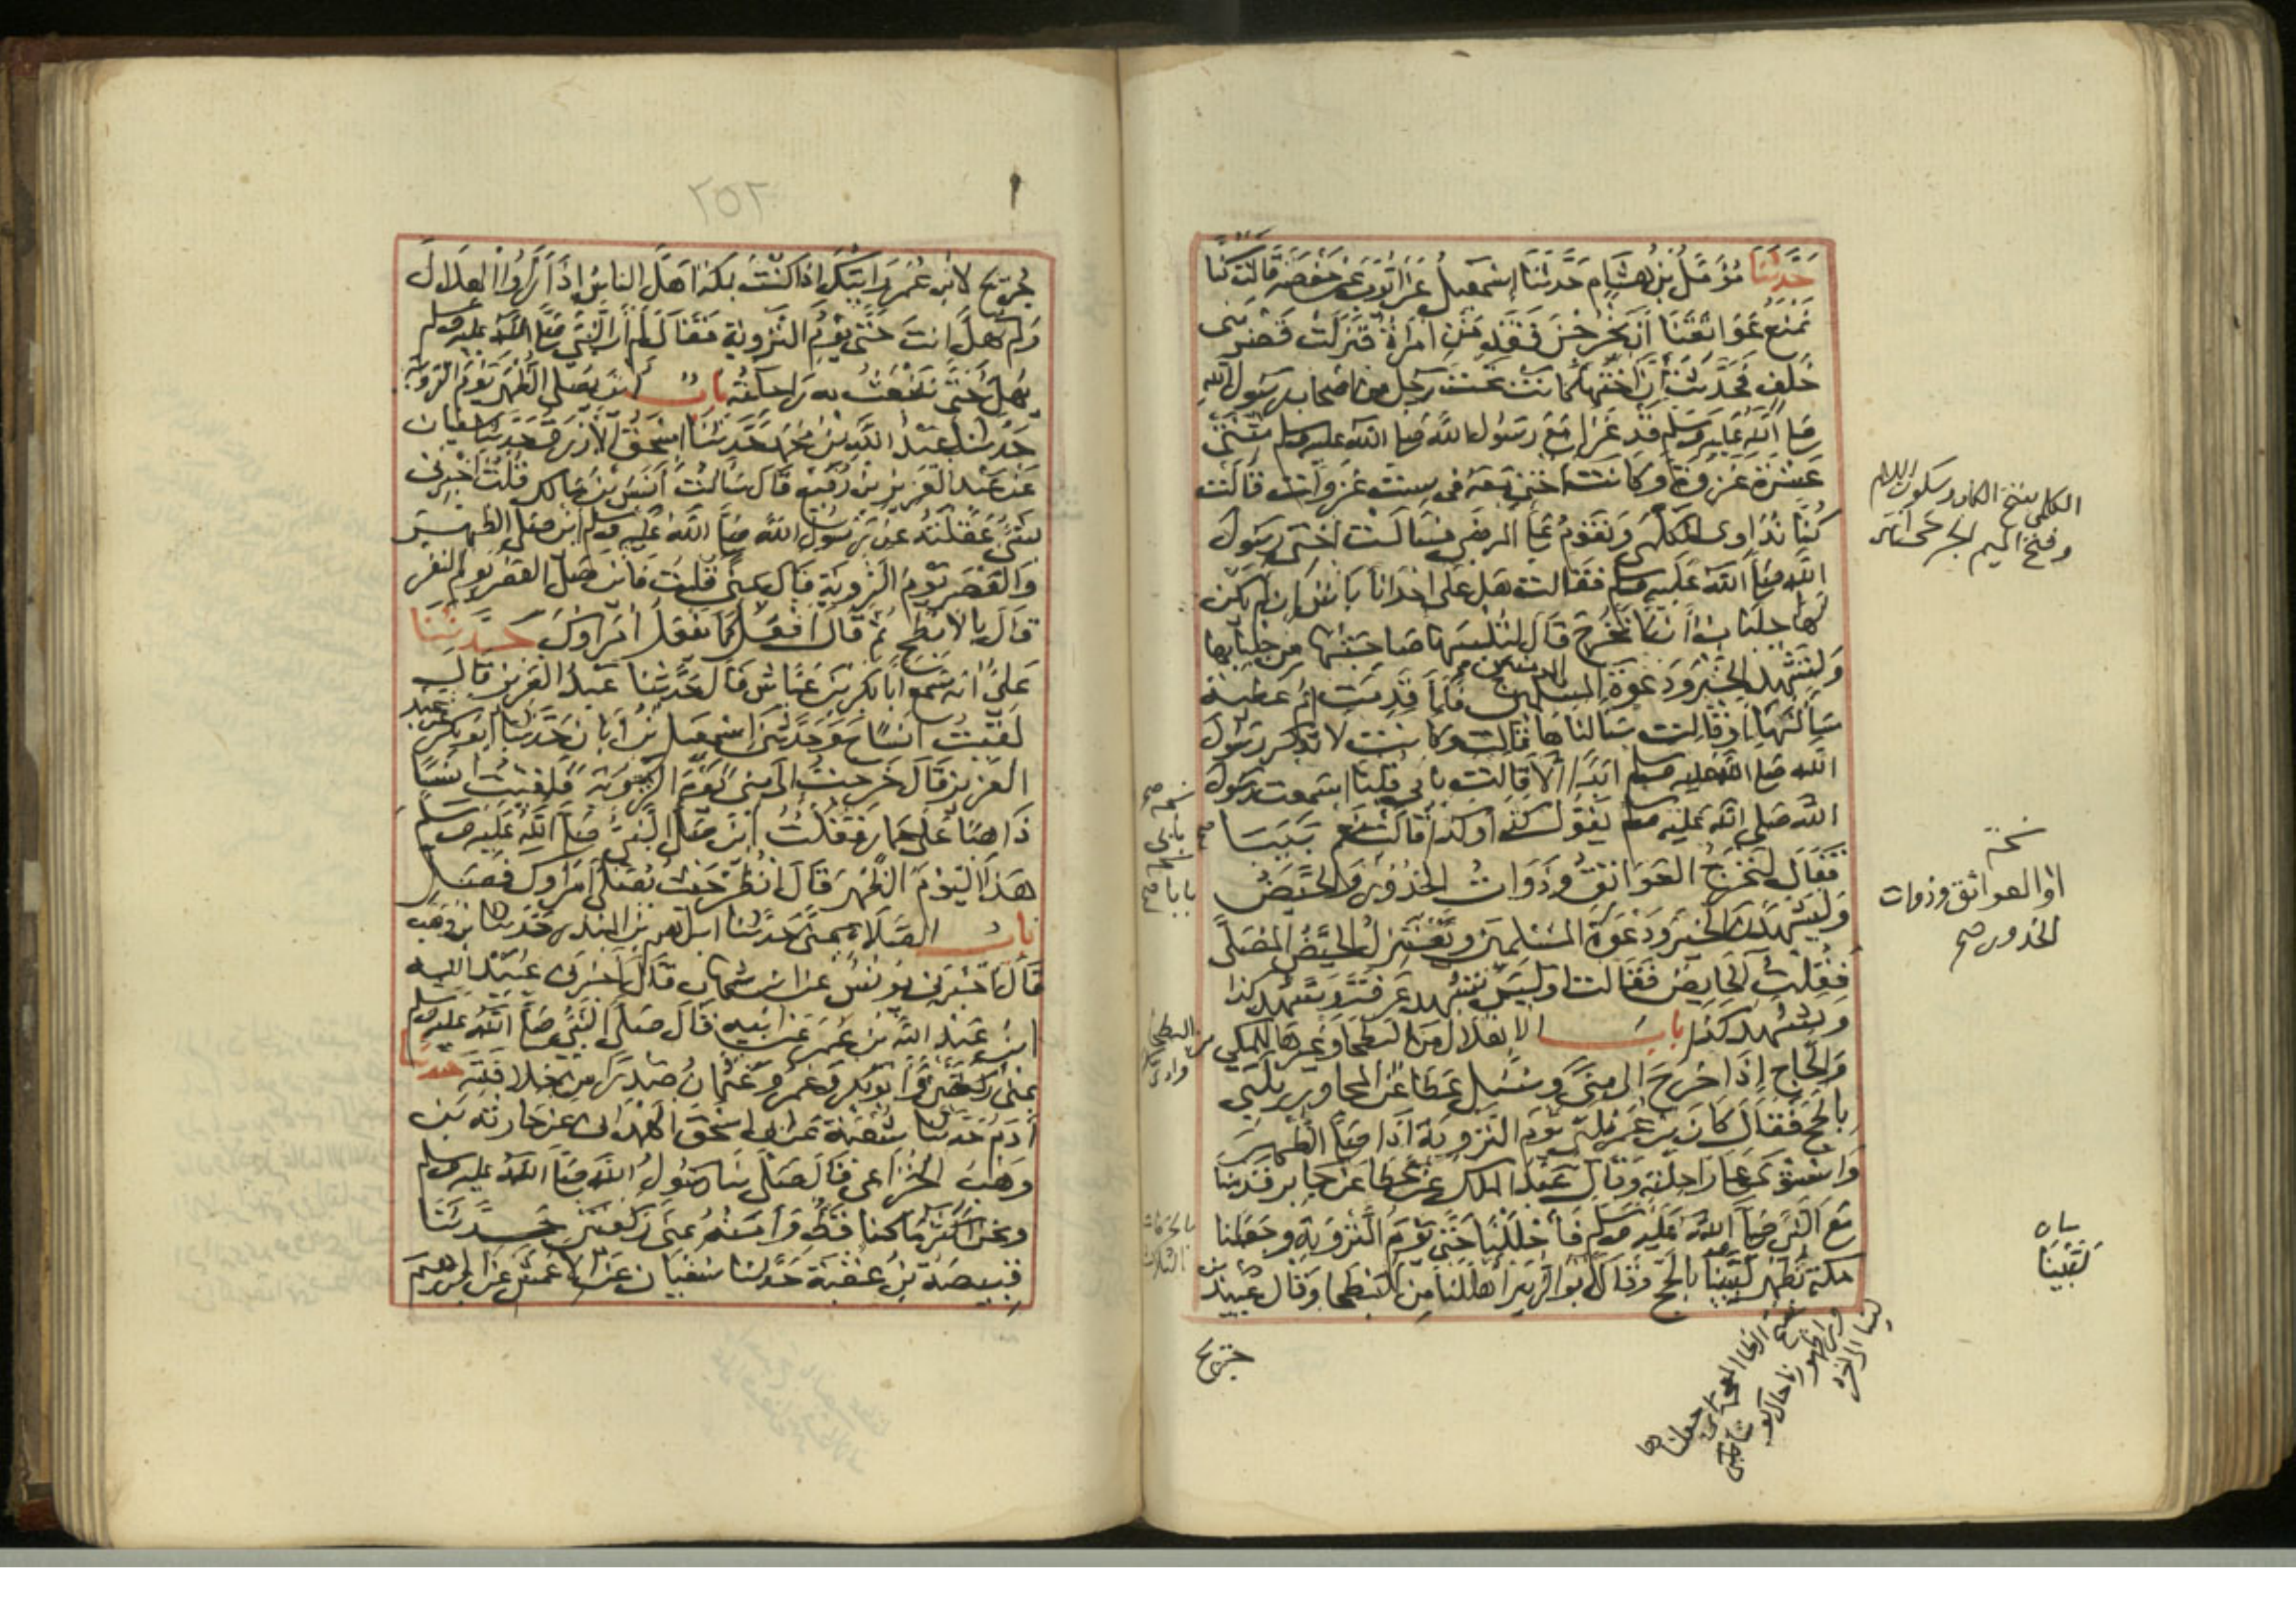 حدثنا مؤمل بن هشام حدثنا اسمعيل عن ايوب عن حفصة قالت كنا
نمنع عواتقنا ان يخرجن فقدمت امراة فنزلت قصر بني
خلف فحدثت ان اختها كانت تحت رجل من اصحاب رسول الله
صلى الله عليه وسلم قد غزا مع رسول الله صلى الله عليه وسلم ثنتي
عشرة غزوة وكانت اختي معه في ست غزوات قالت
كنا نداوي الكلمى ونقوم على المرضى فسالت اختي رسول
الله صلى الله عليه وسلم فقالت هل على احدانا باس ان لم يكن
لها جلباب ان لا تخرج قال لتلبسها صاحبتها من جلبابها
ولتشهد الخير ودعوة المسلمين فلما قدمت ام عطية
سالتها او قالت سالناها قالت وكانت لا تذكر رسول
الله صلى الله عليه وسلم ابدا الا قالت بابي قلنا اسمعت رسول
الله صلى الله عليه وسلم يقول كذا وكذا قالت نعم بيبا
فقال لتخرج العواتق وذوات الخدور والحيض
وليشهدن الخير ودعوة المسلمين وتعتزل الحيض المصلى
فقلت الحايض فقالت اوليس تشهد عرفة وتشهد كذا
وتشهد كذا باب الاهلال من البطحا وغيرها للمكي
والحاج اذا خرج الى منى وسئل عطا عن المجاور يلبي
بالحج فقال كان بن عمر يلبي يوم التروية اذا صلى الظهر
واستوى على راحلته وقال عبد الملك عن عطا عن جابر قدمنا
مع النبي صلى الله عليه وسلم فاحللنا حتى يوم التروية وجعلنا
مكة بظهر لبينا بالحج وقال ابو الزبير اهللنا من البطحا وقال عبيد بن
جريج
الكلمى بفتح الكاف وسكون اللام
وفتح الميم الجرحى
نسخة
او العواتق وذوات
الخدور صح
بيان
لبينا
٢٥٢
جريج لابن عمر رايتك اذا كنت بمكة اهل الناس اذا راوا الهلال
ولم تهل انت حتى يوم التروية فقال لم ار النبي صلى الله عليه وسلم
يهل حتى تنبعث به راحلته باب اين يصلي الظهر يوم التروية
حدثنا عبد الله بن محمد حدثنا اسحق الازرق حدثنا سفيان
عن عبد العزيز بن رفيع قال سالت انس بن مالك قلت اخبرني
بشئ عقلته عن رسول الله صلى الله عليه وسلم اين صلى الظهر
والعصر يوم التروية قال بمنى قلت فاين صلى العصر يوم النفر
قال بالابطح ثم قال افعل كما يفعل امراوك حدثنا
على انه سمع ابا بكر بن عياش قال حدثنا عبد العزيز قال
لقيت انسا ح وحدثني اسمعيل بن ابان حدثنا ابو بكر عن عبد
العزيز قال خرجت الى منى يوم التروية فلقيت انسا
ذاهبا على حمار فقلت اين صلى النبي صلى الله عليه وسلم
هذا اليوم الظهر قال انظر حيث يصلي امراوك فصل
باب الصلاة بمنى حدثنا ابراهيم بن المنذر حدثنا بن وهب
قال اخبرني يونس عن ابن شهاب قال اخبرني عبيد الله
ابن عبد الله بن عمر عن ابيه قال صلى النبي صلى الله عليه وسلم
بمنى ركعتين وابو بكر وعمر وعثمان صدرا من خلافته حدثنا
ادم حدثنا شعبة عن ابي اسحق الهمداني عن حارثة بن
وهب الخزاعي قال صلى بنا رسول الله صلى الله عليه وسلم
ونحن اكثر ما كنا قط وامنه بمنى ركعتين حدثنا
قبيصة بن عقبة حدثنا سفيان عن الاعمش عن ابراهيم